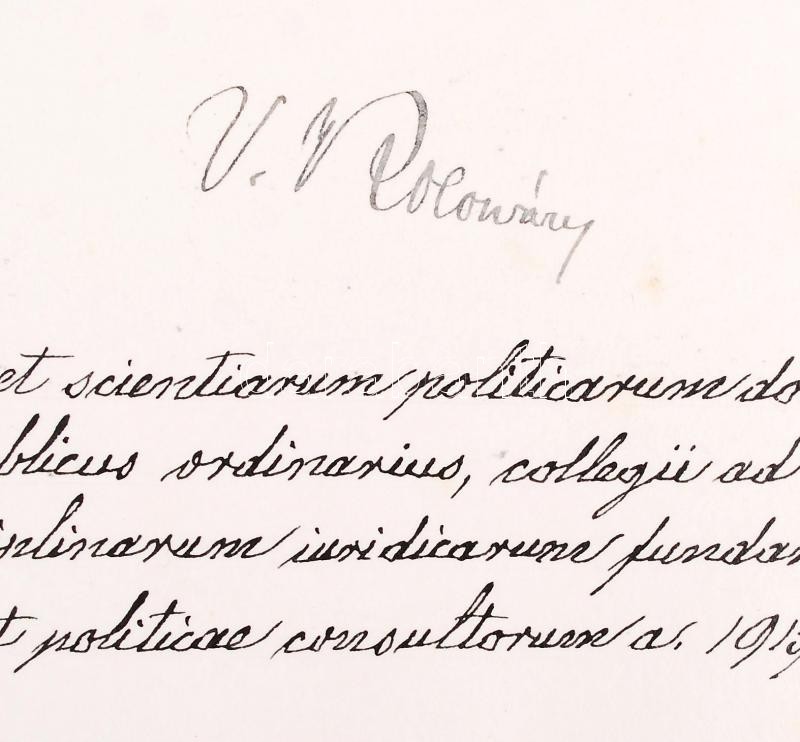 V. Kolosváry
et scientiarum politicarum do
blicus ordinarius, collegii ad
iplinarum iuridicarum fundam
t politicae consultorum a. 1919